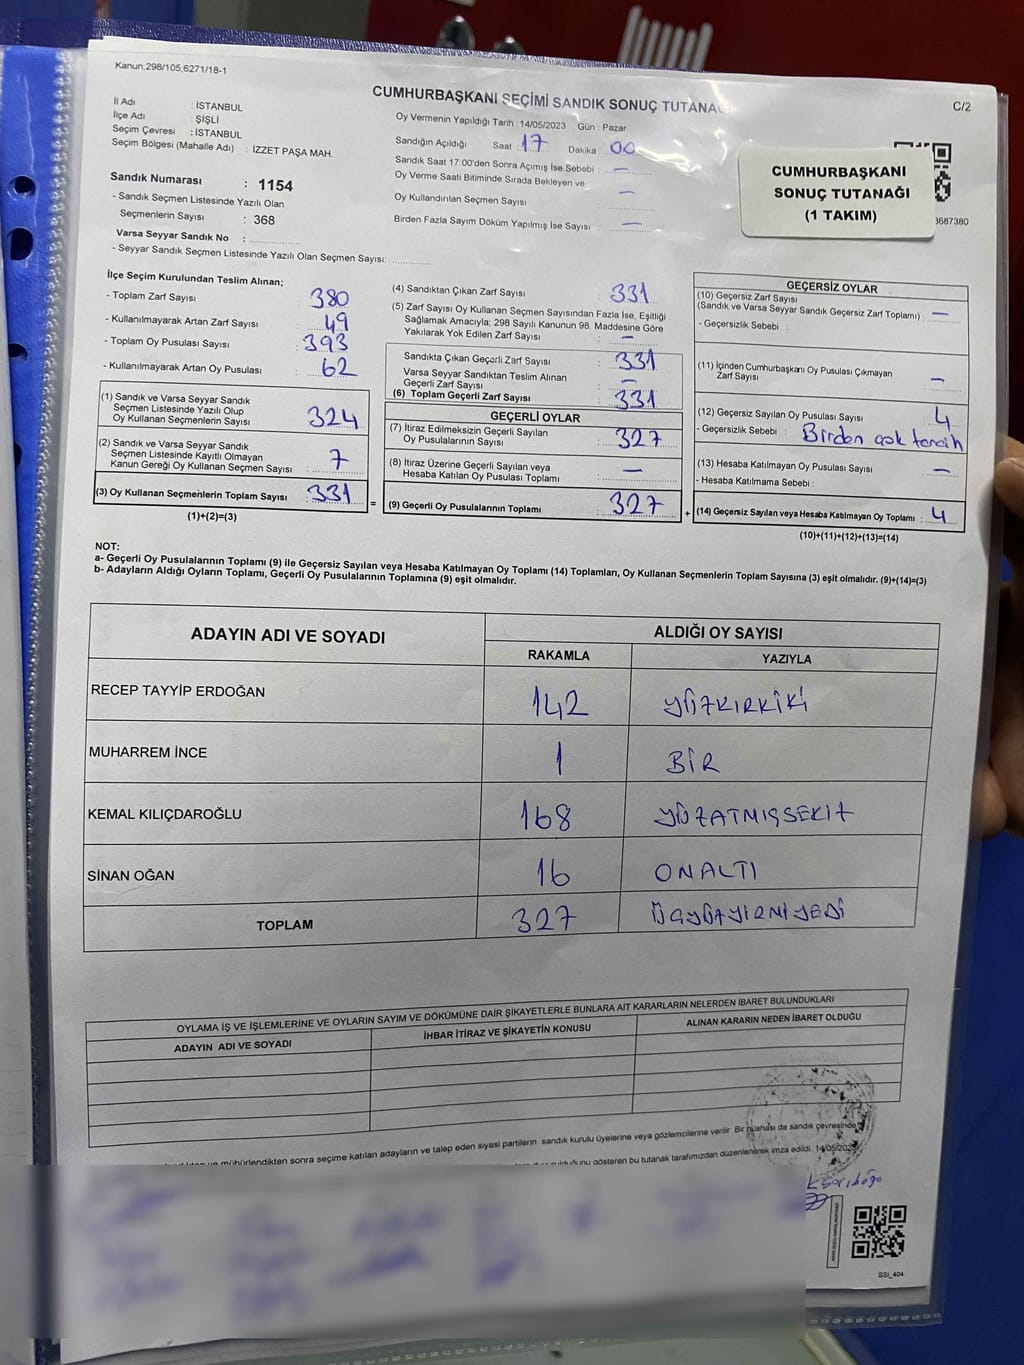 Kanun;298/105;6271/18-1
CUMHURBAŞKANI SEÇİMİ SANDIK SONUÇ
C/2
İl Adı : İSTANBUL
İlçe Adı : ŞİŞLİ
Seçim Çevresi : İSTANBUL
Seçim Bölgesi (Mahalle Adı) : İZZET PAŞA MAH.
Sandık Numarası : 1154
- Sandık Seçmen Listesinde Yazılı Olan
Seçmenlerin Sayısı : 368
Varsa Seyyar Sandık No :
- Seyyar Sandık Seçmen Listesinde Yazılı Olan Seçmen Sayısı:
Oy Vermenin Yapıldığı Tarih : 14/05/2023 Gün : Pazar
Sandığın Açıldığı Saat 17 Dakika : 00
Sandık Saat 17:00'den Sonra Açımış İse Sebebi : —
Oy Verme Saati Bitiminde Sırada Bekleyen ve
Oy Kullandırılan Seçmen Sayısı : —
Birden Fazla Sayım Döküm Yapılmış İse Sayısı : —
CUMHURBAŞKANI
SONUÇ TUTANAĞI
(1 TAKIM)
3687380
İlçe Seçim Kurulundan Teslim Alınan;
- Toplam Zarf Sayısı : 380
- Kullanılmayarak Artan Zarf Sayısı : 49
- Toplam Oy Pusulası Sayısı : 393
- Kullanılmayarak Artan Oy Pusulası : 62
(1) Sandık ve Varsa Seyyar Sandık
Seçmen Listesinde Yazılı Olup
Oy Kullanan Seçmenlerin Sayısı : 324
(2) Sandık ve Varsa Seyyar Sandık
Seçmen Listesinde Kayıtlı Olmayan
Kanun Gereği Oy Kullanan Seçmen Sayısı : 7
(3) Oy Kullanan Seçmenlerin Toplam Sayısı : 331
(1)+(2)=(3)
=
(4) Sandıktan Çıkan Zarf Sayısı : 331
(5) Zarf Sayısı Oy Kullanan Seçmen Sayısından Fazla İse, Eşitliği
Sağlamak Amacıyla; 298 Sayılı Kanunun 98. Maddesine Göre
Yakılarak Yok Edilen Zarf Sayısı : —
Sandıkta Çıkan Geçerli Zarf Sayısı : 331
Varsa Seyyar Sandıktan Teslim Alınan
Geçerli Zarf Sayısı : —
(6) Toplam Geçerli Zarf Sayısı : 331
GEÇERLİ OYLAR
(7) İtiraz Edilmeksizin Geçerli Sayılan
Oy Pusulalarının Sayısı : 327
(8) İtiraz Üzerine Geçerli Sayılan veya
Hesaba Katılan Oy Pusulası Toplamı : —
(9) Geçerli Oy Pusulalarının Toplamı : 327
+
GEÇERSİZ OYLAR
(10) Geçersiz Zarf Sayısı
(Sandık ve Varsa Seyyar Sandık Geçersiz Zarf Toplamı) : —
- Geçersizlik Sebebi :
(11) İçinden Cumhurbaşkanı Oy Pusulası Çıkmayan
Zarf Sayısı : —
(12) Geçersiz Sayılan Oy Pusulası Sayısı : 4
- Geçersizlik Sebebi : Birden çok tercih
(13) Hesaba Katılmayan Oy Pusulası Sayısı : —
- Hesaba Katılmama Sebebi :
(14) Geçersiz Sayılan veya Hesaba Katılmayan Oy Toplamı : 4
(10)+(11)+(12)+(13)=(14)
NOT:
a- Geçerli Oy Pusulalarının Toplamı (9) ile Geçersiz Sayılan veya Hesaba Katılmayan Oy Toplamı (14) Toplamları, Oy Kullanan Seçmenlerin Toplam Sayısına (3) eşit olmalıdır. (9)+(14)=(3)
b- Adayların Aldığı Oyların Toplamı, Geçerli Oy Pusulalarının Toplamına (9) eşit olmalıdır.
ADAYIN ADI VE SOYADI
ALDIĞI OY SAYISI
RAKAMLA YAZIYLA
RECEP TAYYİP ERDOĞAN 142 YÜZKIRKİKİ
MUHARREM İNCE 1 BİR
KEMAL KILIÇDAROĞLU 168 YÜZATMIŞSEKİZ
SİNAN OĞAN 16 ONALTI
TOPLAM 327 ÜÇYÜZYİRMİYEDİ
OYLAMA İŞ VE İŞLEMLERİNE VE OYLARIN SAYIM VE DÖKÜMÜNE DAİR ŞİKAYETLERLE BUNLARA AİT KARARLARIN NELERDEN İBARET BULUNDUKLARI
ADAYIN ADI VE SOYADI
İHBAR İTİRAZ VE ŞİKAYETİN KONUSU
ALINAN KARARIN NEDEN İBARET OLDUĞU
mühürlendikten sonra seçime katılan adayların ve talep eden siyasi partilerin sandık kurulu üyelerine veya gözlemcilerine verilir. Bir nüshası da sandık çevresinde
gösteren bu tutanak tarafımızdan düzenlenerek imza edildi. 14/05/2023
SSI_404